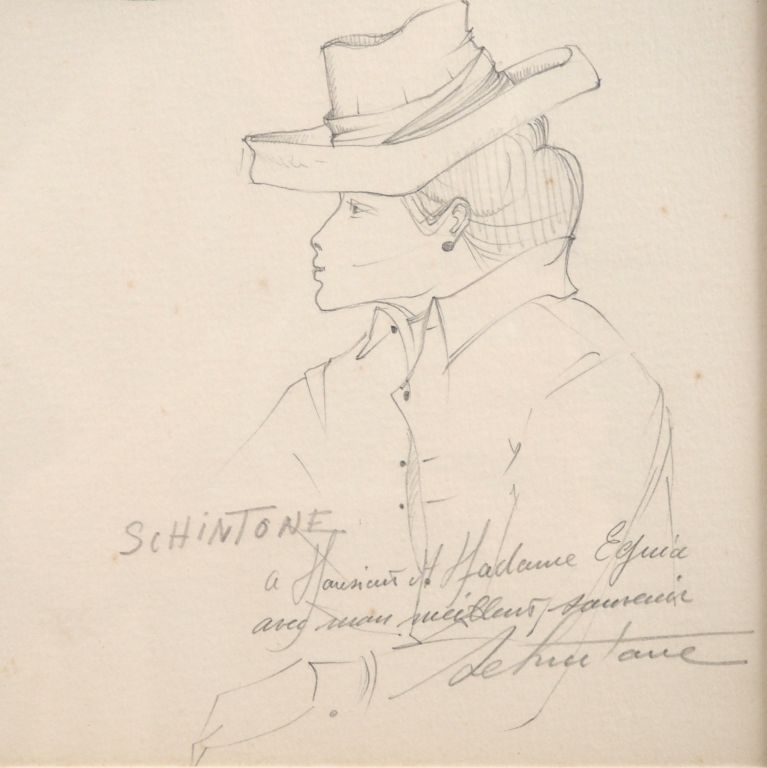 SCHINTONE
a Monsieur et Madame Eguia
avec mon meilleur souvenir
Schintone